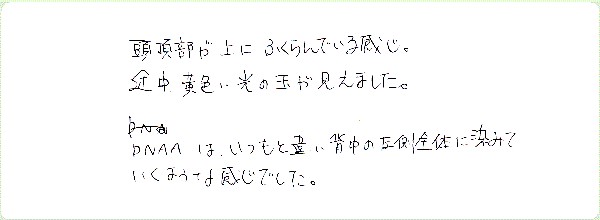 頭頂部が上にふくらんでいる感じ。
途中、黄色い光の玉が見えました。
DNA
DNAAは、いつもと違い背中の左側全体に染みて
いくような感じでした。